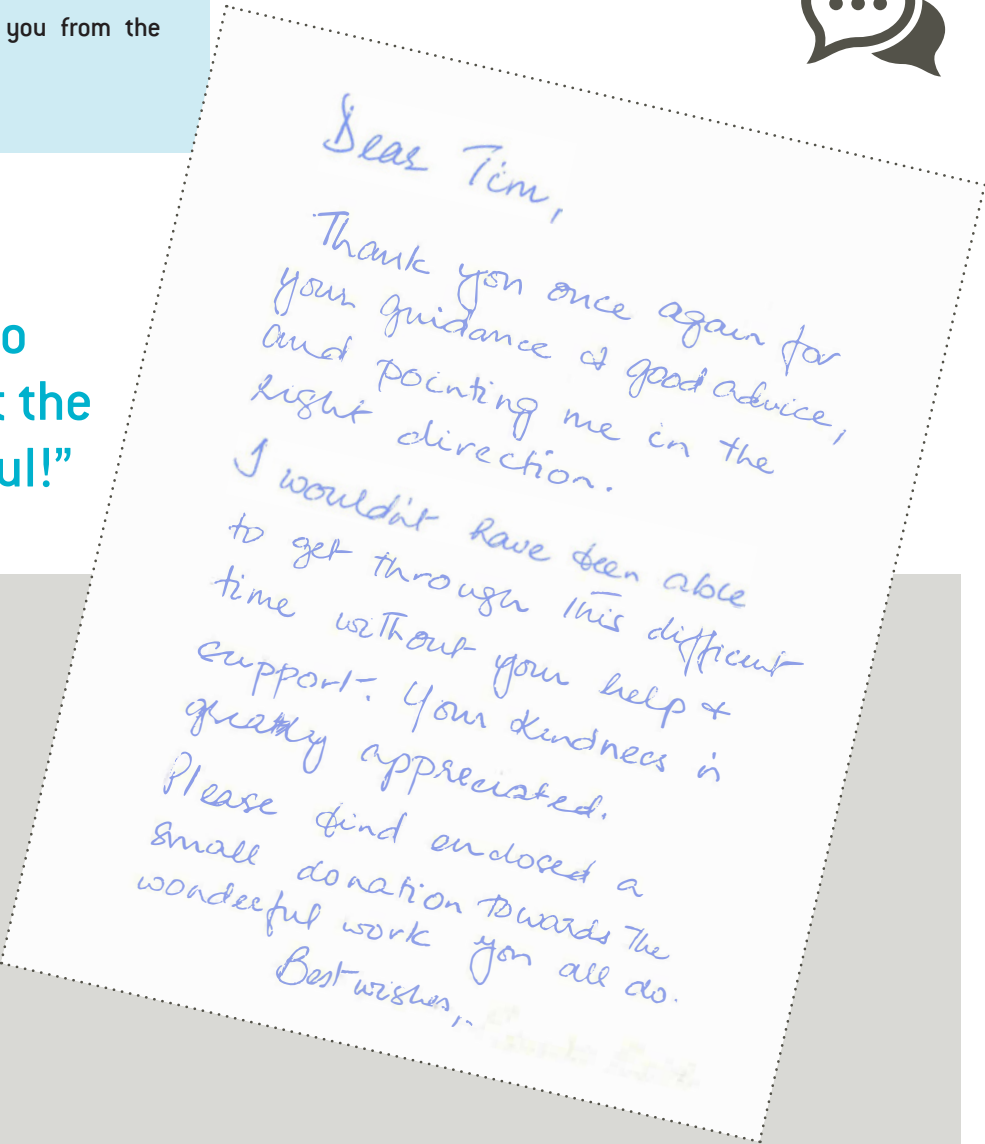 you from the
o
t the
ul!”
Dear Tim,
Thank you once again for
your guidance & good advice,
and pointing me in the
right direction.
I wouldn't have been able
to get through this difficult
time without your help &
support. Your kindness is
greatly appreciated.
Please find enclosed a
small donation towards the
wonderful work you all do.
Best wishes,